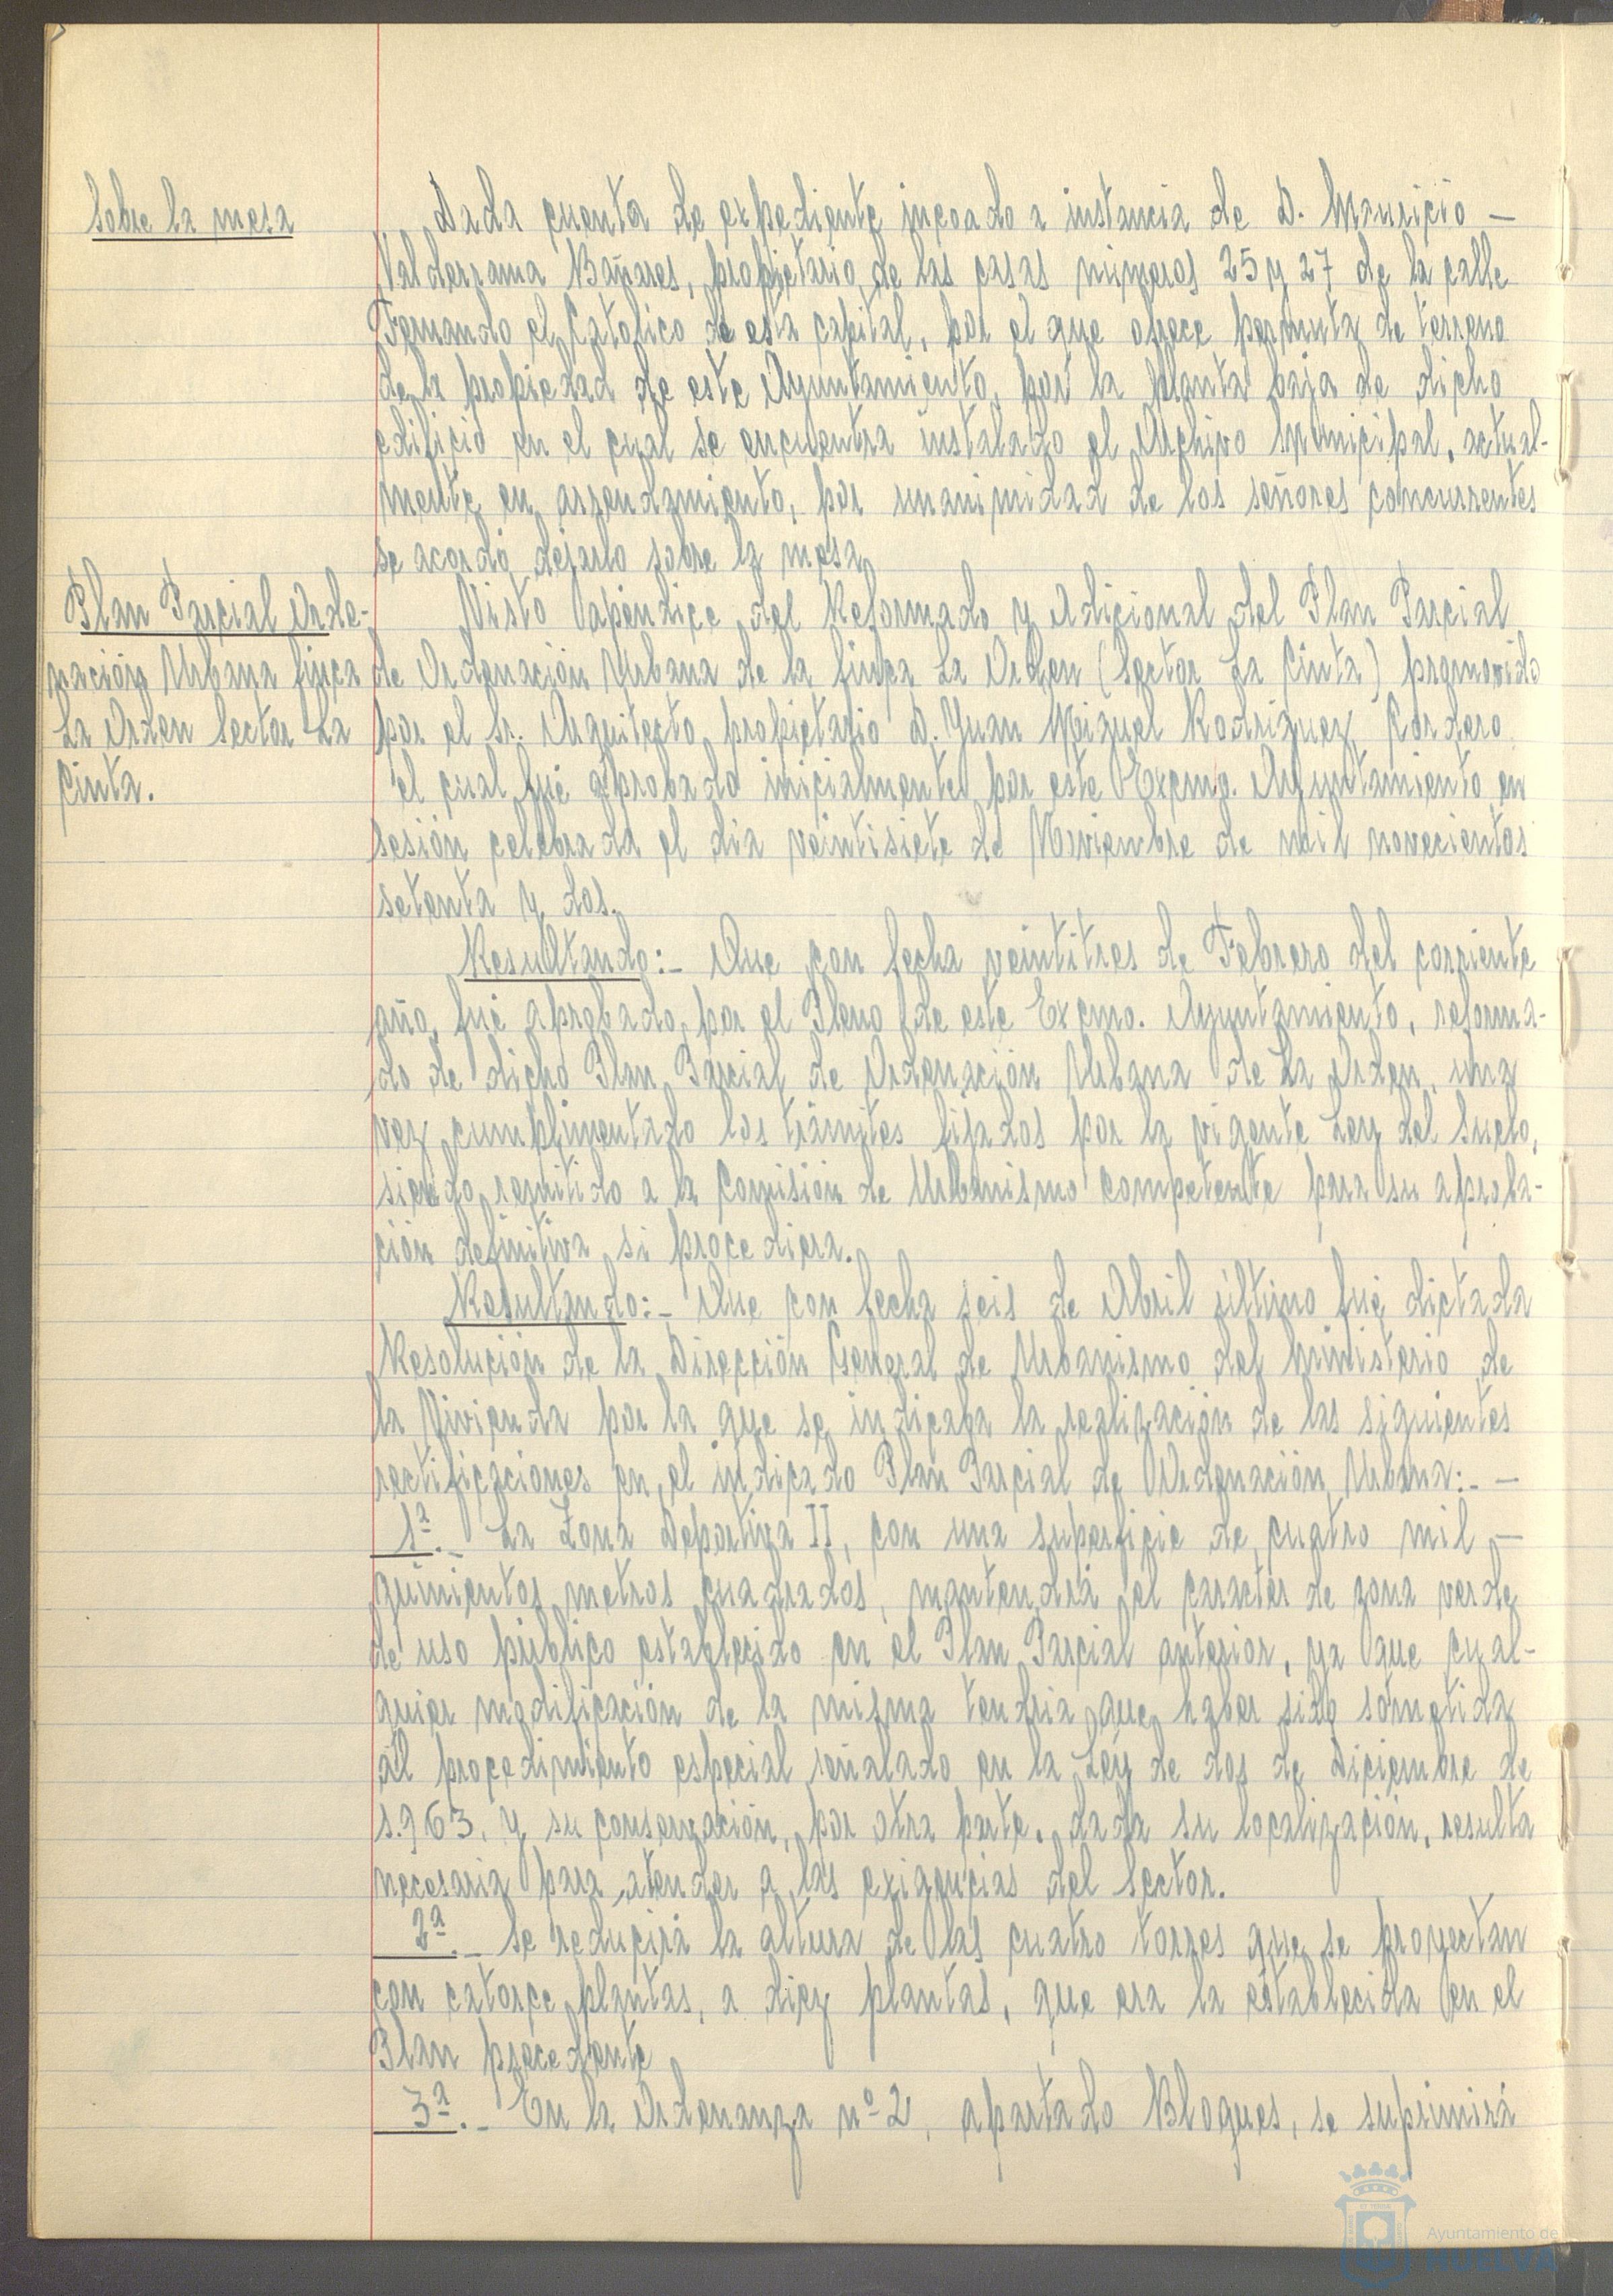 Sobre la mesa
Dada cuenta de expediente incoado a instancia de D. Mauricio –
Valderrama Bañares, propietario de las casas números 25 y 27 de la calle
Fernando el Católico de esta capital, por el que ofrece permuta de terreno
de la propiedad de este Ayuntamiento, por la planta baja de dicho
edificio en el cual se encuentra instalado el Archivo Municipal, actual-
mente en arrendamiento, por unanimidad de los señores concurrentes
se acordó dejarlo sobre la mesa.
Plan Parcial Orde-
nación Urbana finca
La Orden Sector La
Cinta.
Visto apéndice del Reformado y Adicional del Plan Parcial
de Ordenación Urbana de la finca La Orden (Sector La Cinta) promovido
por el Sr. Arquitecto propietario D. Juan Miguel Rodríguez Cordero
el cual fué aprobado inicialmente por este Excmo. Ayuntamiento en
sesión celebrada el dia veintisiete de Noviembre de mil novecientos
setenta y dos.
Resultando:- Que con fecha veintitres de Febrero del corriente
año, fué aprobado, por el Pleno de este Excmo. Ayuntamiento, reforma-
do de dicho Plan Parcial de Ordenación Urbana de La Orden, una
vez cumplimentado los trámites fijados por la vigente Ley del Suelo,
siendo remitido a la Comisión de Urbanismo competente para su aproba-
ción definitiva si procediera.
Resultando:- Que con fecha seis de Abril último fué dictada
Resolución de la Dirección General de Urbanismo del Ministerio de
la Vivienda por la que se indicaba la realización de las siguientes
rectificaciones en el indicado Plan Parcial de Ordenación Urbana:- –
1ª.- La Zona Deportiva II, con una superficie de cuatro mil –
quinientos metros cuadrados, mantendrá el carácter de zona verde
de uso público establecido en el Plan Parcial anterior, ya que cual-
quier modificación de la misma tendria que haber sido sometida
al procedimiento especial señalado en la Ley de dos de Diciembre de
1.963, y su conservación, por otra parte, dada su localización, resulta
necesaria para atender a las exigencias del Sector.
2ª.- Se reducirá la altura de las cuatro torres que se proyectan
con catorce plantas, a diez plantas, que era la establecida en el
Plan precedente
3ª.- En la Ordenanza nº 2, apartado Bloques, se suprimirá
Ayuntamiento de
HUELVA